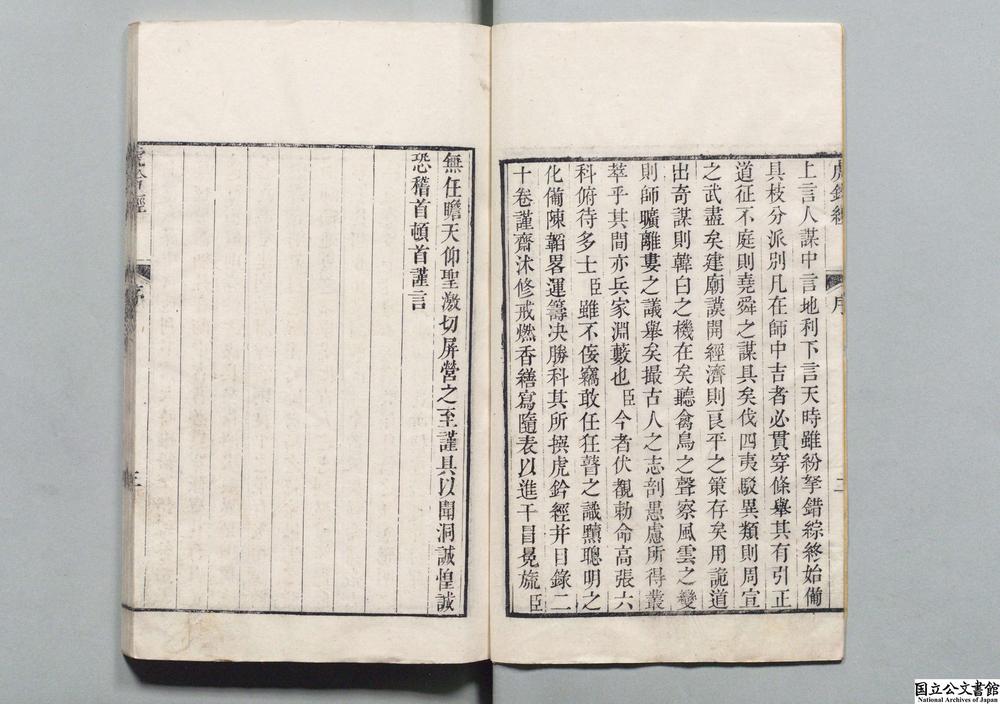 虎鈐經
序
二
上言人謀中言地利下言天時雖紛拏錯綜終始備
具枝分派別凡在師中吉者必貫穿條舉其有引正
道征不庭則堯舜之謀具矣伐四夷馭異類則周宣
之武盡矣建廟謨開經濟則良平之策存矣用詭道
出奇謀則韓白之機在矣聽禽鳥之聲察風雲之變
則師曠離婁之議舉矣撮古人之志剖愚慮所得叢
萃乎其間亦兵家淵藪也臣今者伏覩勅命高張六
科俯待多士臣雖不佞竊敢任狂瞽之識黷聰明之
化備陳韜畧運籌决勝科其所撰虎鈐經幷目錄二
十卷謹齋沐修戒燃香繕寫隨表以進干冒冕旒臣
無任瞻天仰聖激切屏營之至謹具以聞洞誠惶誠
恐稽首頓首謹言
虎鈐經
序
三
国立公文書館
National Archives of Japan